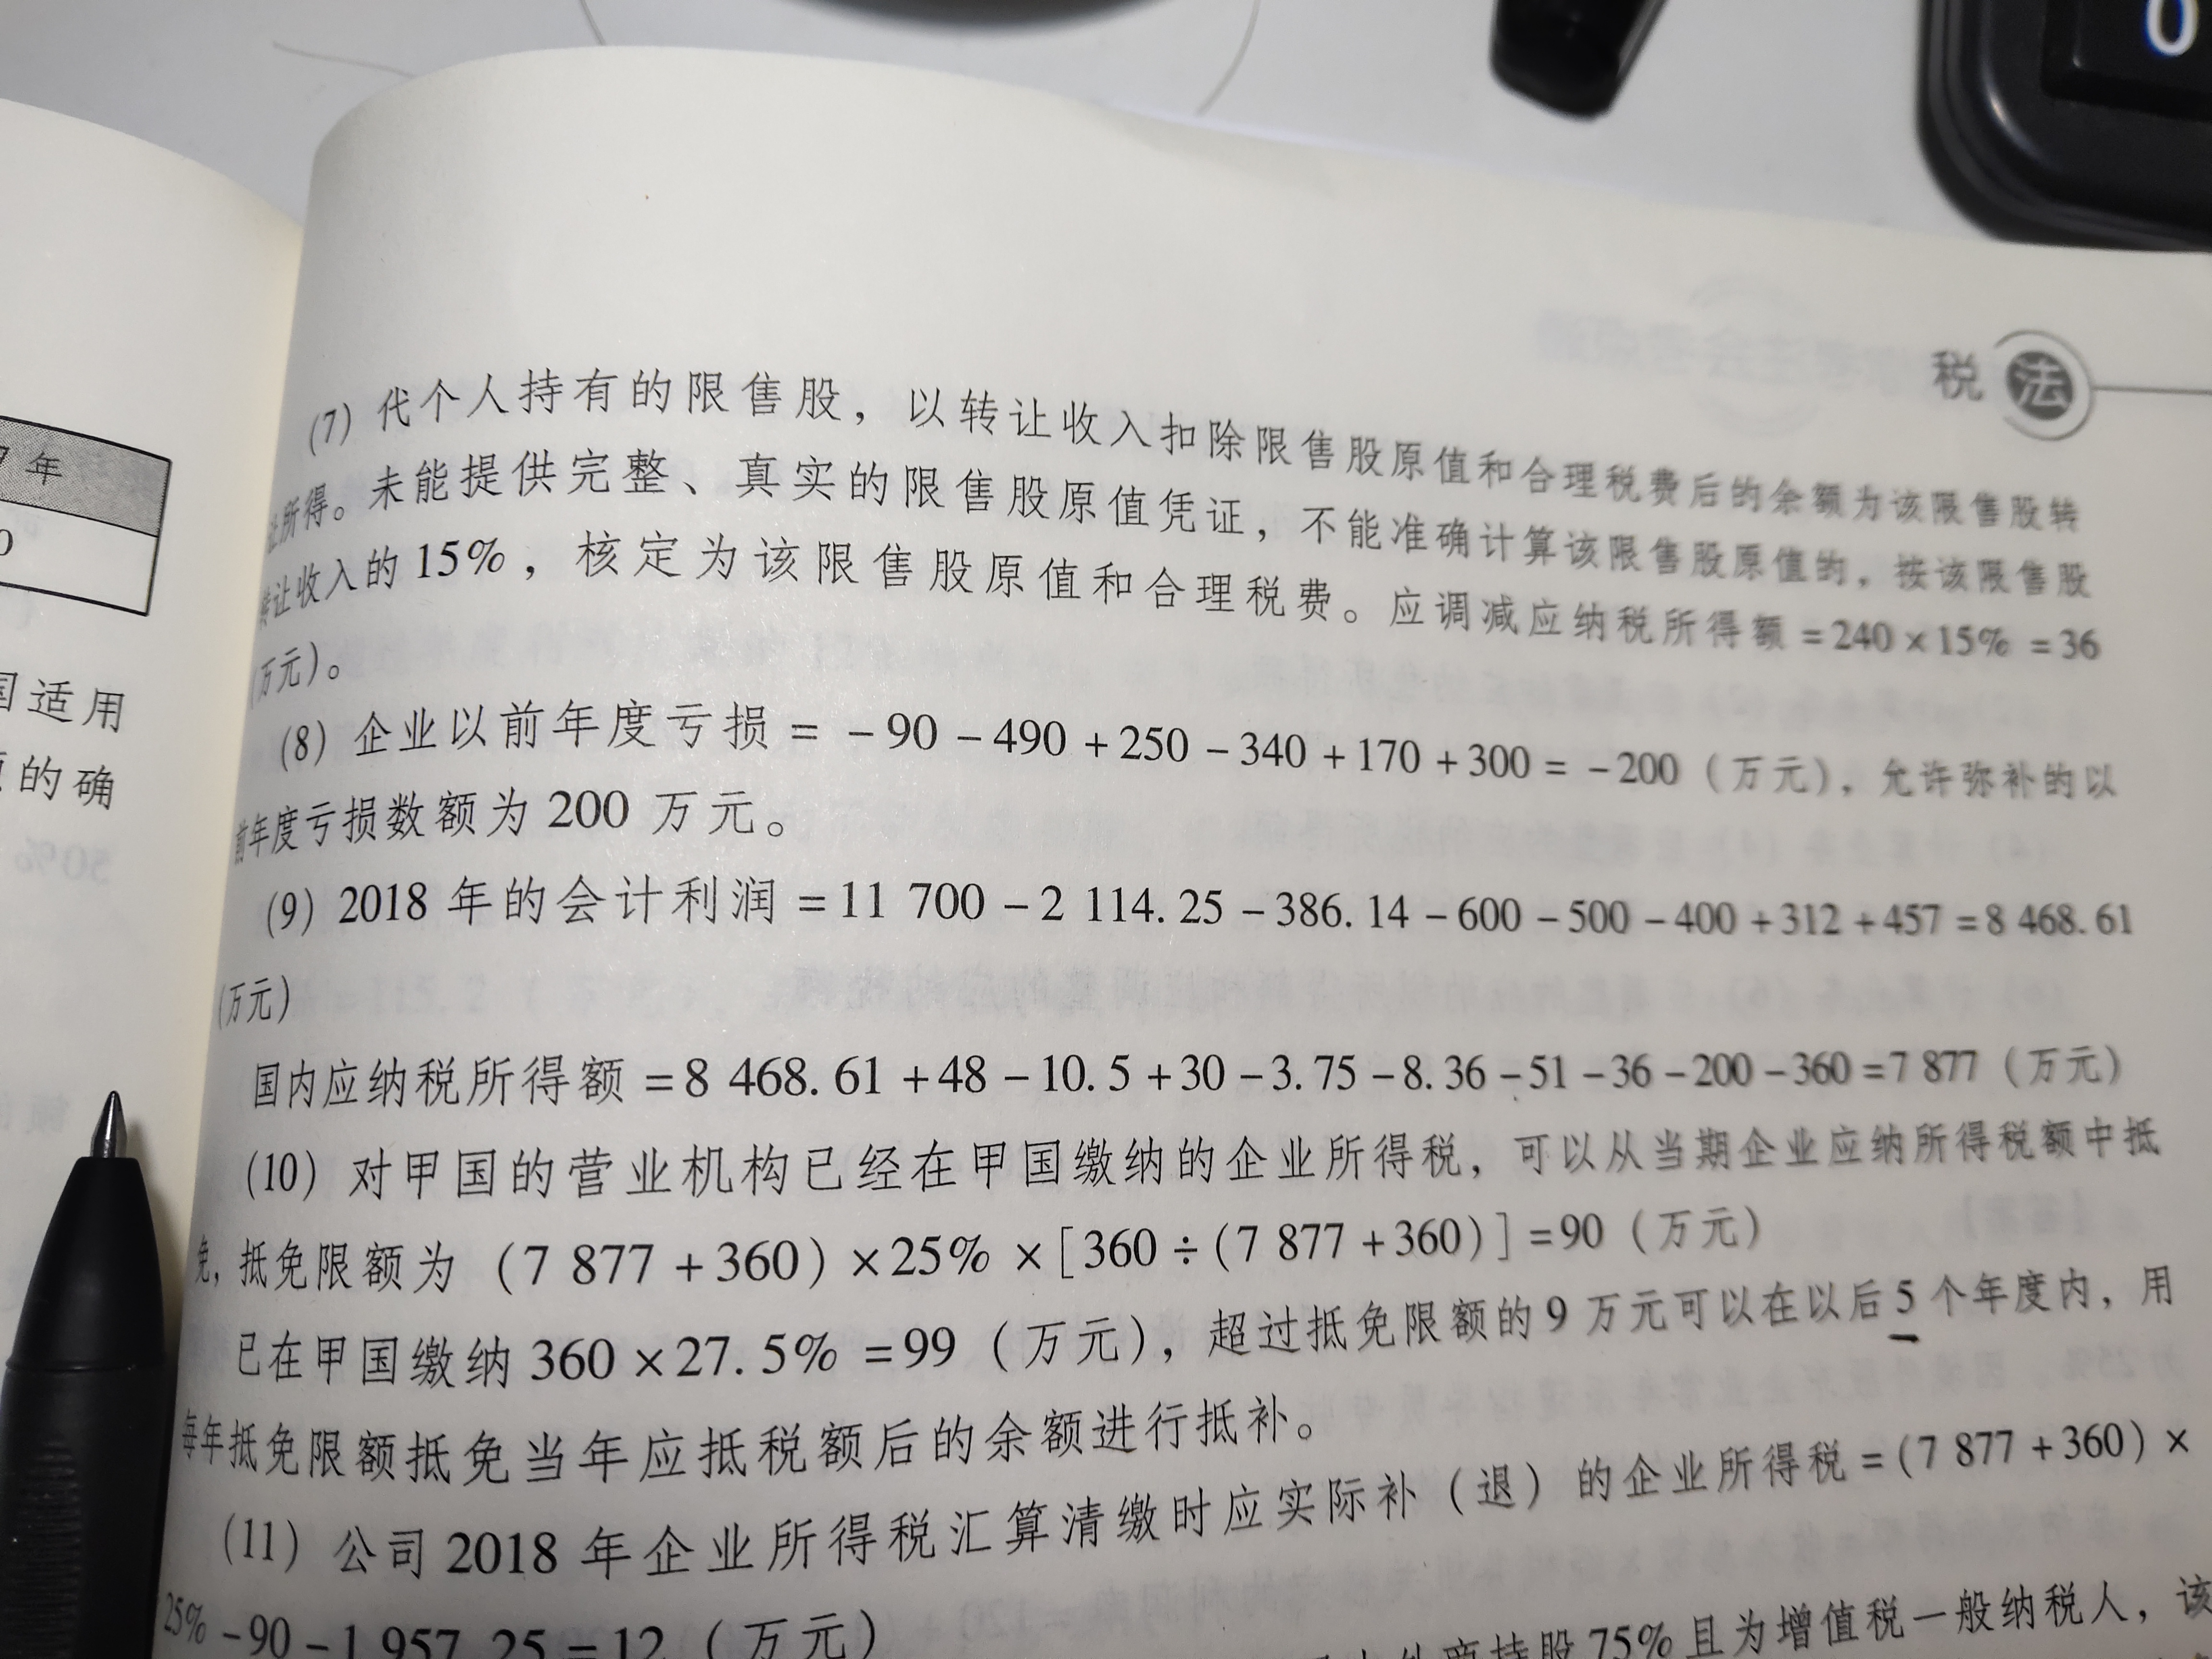 0
税法
7年
0
国适用
的确
(7) 代个人持有的限售股，以转让收入扣除限售股原值和合理税费后的余额为该限售股转
让所得。未能提供完整、真实的限售股原值凭证，不能准确计算该限售股原值的，按该限售股
转让收入的15%，核定为该限售股原值和合理税费。应调减应纳税所得额=240×15%=36
(万元)。
(8) 企业以前年度亏损=-90-490+250-340+170+300=-200（万元），允许弥补的以
前年度亏损数额为200万元。
(9) 2018年的会计利润=11 700-2 114.25-386.14-600-500-400+312+457=8 468.61
(万元)
国内应纳税所得额=8 468.61+48-10.5+30-3.75-8.36-51-36-200-360=7 877（万元）
(10) 对甲国的营业机构已经在甲国缴纳的企业所得税，可以从当期企业应纳所得税额中抵
免，抵免限额为（7 877+360）×25%×[360÷(7 877+360)]=90（万元）
已在甲国缴纳360×27.5%=99（万元），超过抵免限额的9万元可以在以后5个年度内，用
每年抵免限额抵免当年应抵税额后的余额进行抵补。
(11) 公司2018年企业所得税汇算清缴时应实际补（退）的企业所得税=(7 877+360)×
25%-90-1 957.25=12（万元）
持股75%且为增值税一般纳税人，该